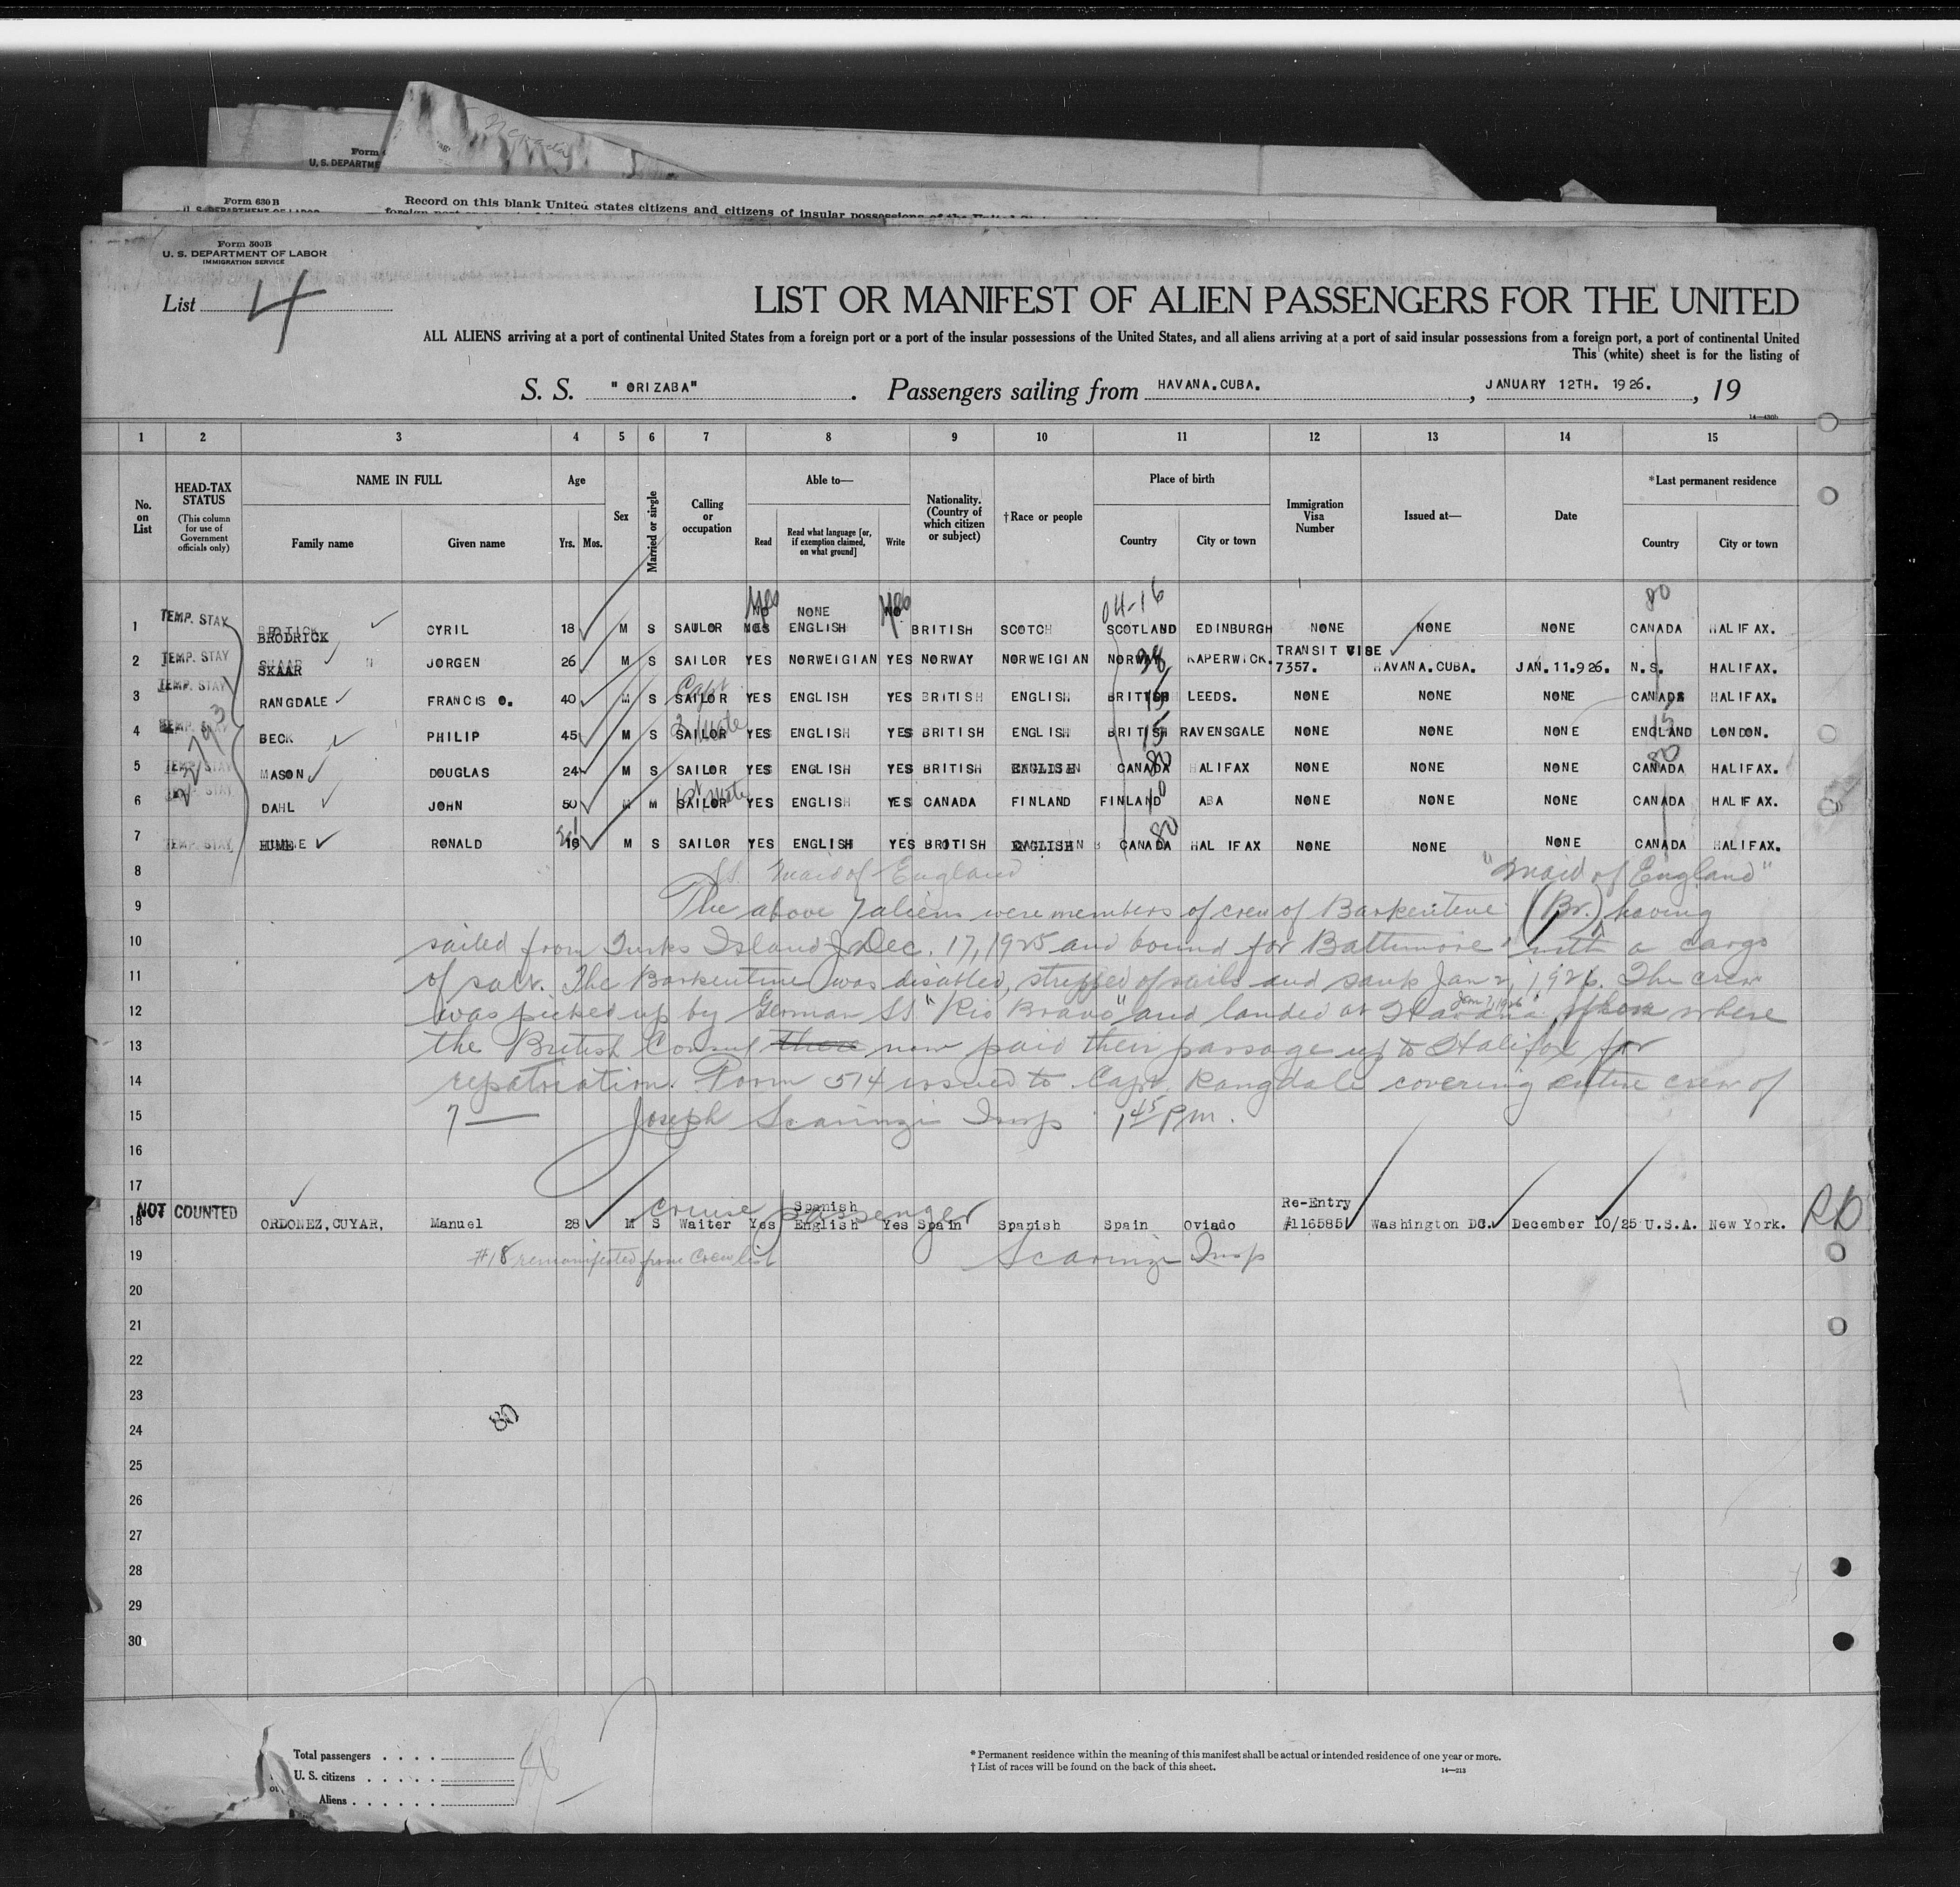 Form
U. S. DEPARTME
Form 630 B
U. S. DEPARTMENT OF LABOR
Record on this blank United States citizens and citizens of insular possessions of the United States
Form 500B
U. S. DEPARTMENT OF LABOR
IMMIGRATION SERVICE
List 4
LIST OR MANIFEST OF ALIEN PASSENGERS FOR THE UNITED
ALL ALIENS arriving at a port of continental United States from a foreign port or a port of the insular possessions of the United States, and all aliens arriving at a port of said insular possessions from a foreign port, a port of continental United
This (white) sheet is for the listing of
S. S. "ORIZABA". Passengers sailing from HAVANA.CUBA., JANUARY 12TH. 1926., 19
14—430b
1 2 3 4 5 6 7 8 9 10 11 12 13 14 15
No. on List
HEAD-TAX STATUS
(This column for use of Government officials only)
NAME IN FULL
Family name Given name
Age
Yrs. Mos.
Sex
Married or single
Calling or occupation
Able to—
Read
Read what language [or, if exemption claimed, on what ground]
Write
Nationality. (Country of which citizen or subject)
†Race or people
Place of birth
Country City or town
Immigration Visa Number
Issued at—
Date
*Last permanent residence
Country City or town
Yes NO NONE Yes NO 04-16 80
1 TEMP. STAY BRODRICK CYRIL 18 M S SAILOR YES ENGLISH BRITISH SCOTCH SCOTLAND EDINBURGH NONE NONE NONE CANADA HALIFAX.
2 TEMP. STAY SKAAR JORGEN 26 M S SAILOR YES NORWEIGIAN YES NORWAY NORWEIGIAN NORWAY KAPERWICK. TRANSIT VISE 7357. HAVANA.CUBA. JAN.11.926. N.S. HALIFAX.
3 TEMP. STAY RANGDALE FRANCIS O. 40 M S SAILOR Capt YES ENGLISH YES BRITISH ENGLISH BRITISH 15 LEEDS. NONE NONE NONE CANADA HALIFAX.
4 TEMP. STAY BECK PHILIP 45 M S SAILOR 2 Mate YES ENGLISH YES BRITISH ENGLISH BRITISH 15 RAVENSGALE NONE NONE NONE ENGLAND 15 LONDON.
5 TEMP. STAY MASON DOUGLAS 24 M S SAILOR YES ENGLISH YES BRITISH ENGLISH CANADA 80 HALIFAX NONE NONE NONE CANADA 80 HALIFAX.
6 TEMP. STAY DAHL JOHN 50 M M SAILOR 1st Mate YES ENGLISH YES CANADA FINLAND FINLAND 10 ABA NONE NONE NONE CANADA HALIFAX.
7 TEMP. STAY HUME RONALD 19 M S SAILOR YES ENGLISH YES BRITISH ENGLISH CANADA 80 HALIFAX NONE NONE NONE CANADA HALIFAX.
8 SS. Maid of England "Maid of England"
9 The above 7 aliens were members of crew of Barkentine (Br.) having
10 sailed from Turks Island Dec. 17, 1925 and bound for Baltimore with a cargo
11 of salt. The Barkentine was disabled, stripped of sails and sank Jan 2, 1926. The crew
12 was picked up by German SS. "Rio Bravo" and landed at Havana Jan 7, 1926 where
13 the British Consul there now paid their passage up to Halifax for
14 repatriation. Form 514 issued to Capt. Rangdale covering entire crew of
15 7 — Joseph Scarinzi Insp 1 45 P.M.
16
17
Cruise passenger
18 NOT COUNTED ORDONEZ,CUYAR, Manuel 28 M S Waiter Yes Spanish English Yes Spain Spanish Spain Oviado Re-Entry #116585 Washington DC. December 10/25 U.S.A. New York.
19 #18 remanifested from Crew list Scarinzi Insp
20
21
22
23
24 80
25
26
27
28
29
30
Total passengers . . . .
U. S. citizens . . . . .
Aliens . . . . . .
* Permanent residence within the meaning of this manifest shall be actual or intended residence of one year or more.
† List of races will be found on the back of this sheet. 14—213